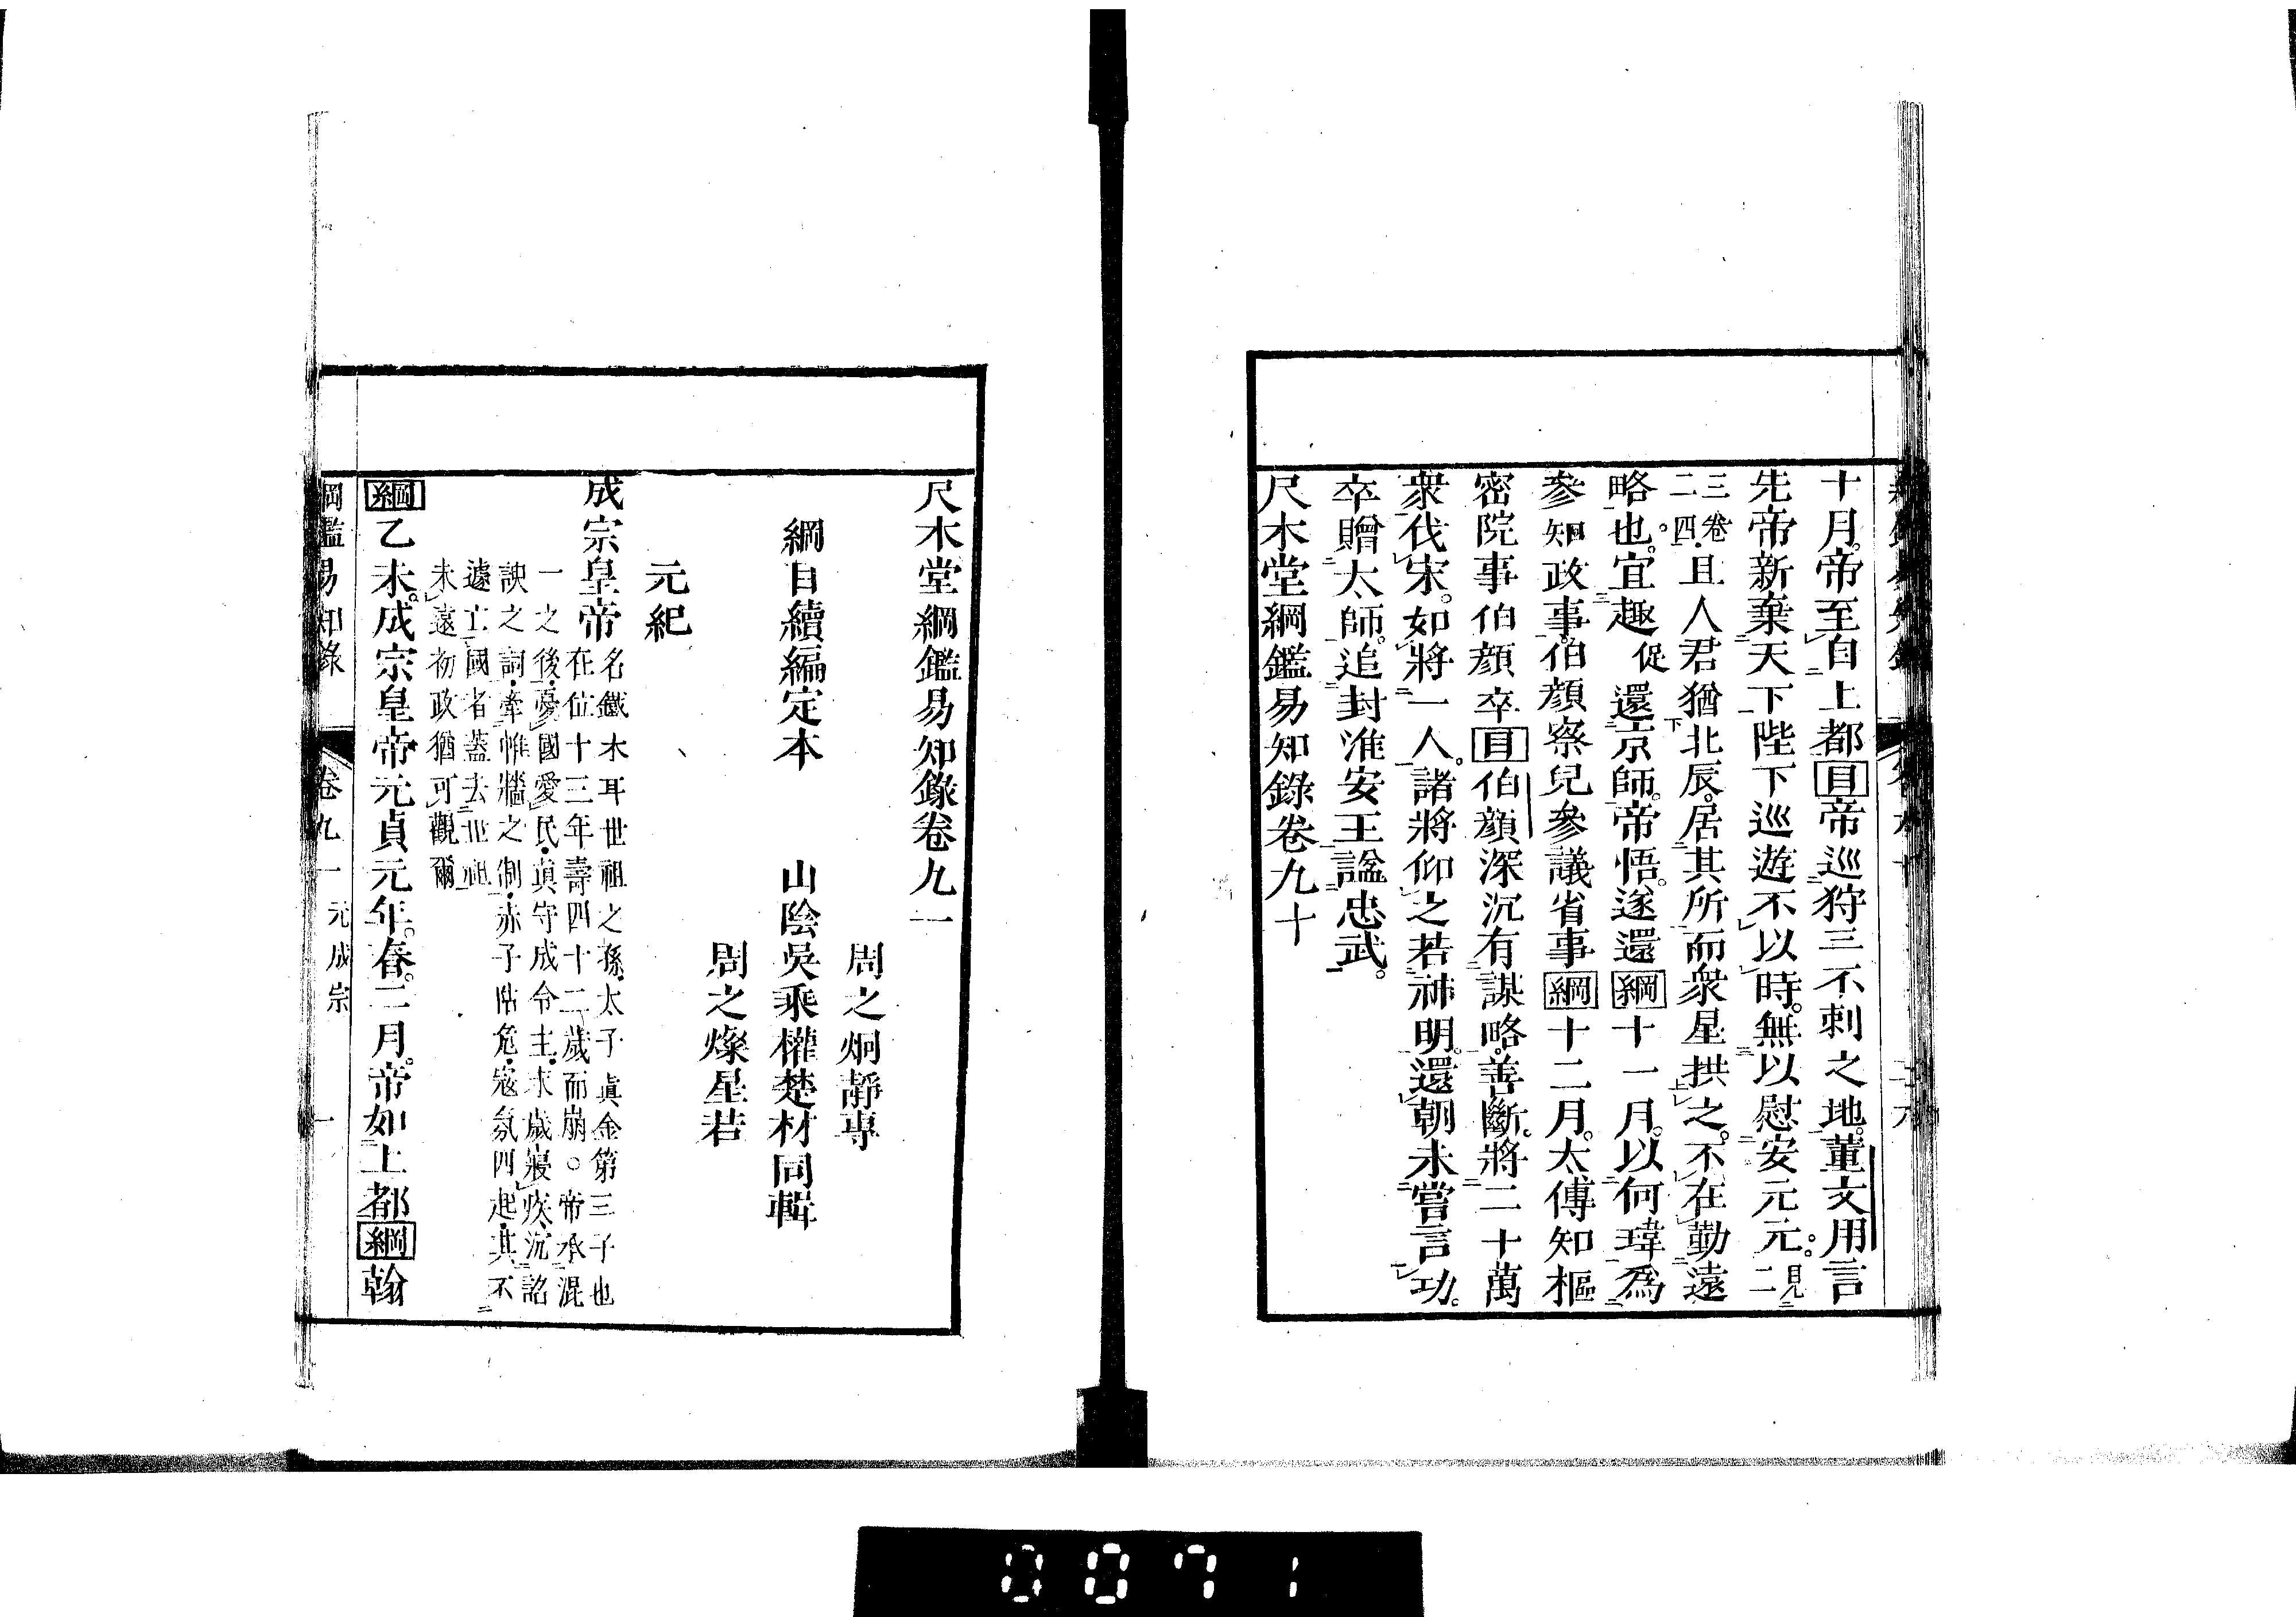 十月。帝至自上都目帝巡狩三不剌之地。董文用言
先帝新棄天下陛下巡遊不以時。無以慰安元元。見二
三卷二四。且人君猶北辰。居其所而衆星拱之。不在勤遠
略也。宜趣促還京師。帝悟。遂還綱十一月。以何瑋爲
參知政事。伯顏察兒參議省事綱十二月。太傅知樞
密院事伯顏卒目伯顏深沉有謀略。善斷。將二十萬
衆伐宋。如將一人。諸將仰之若神明。還朝未嘗言功。
卒贈太師。追封淮安王諡忠武。
尺木堂綱鑑易知錄卷九十
尺木堂綱鑑易知錄卷九一
周之炯靜專
綱目續編定本　山陰吳乘權楚材同輯
周之燦星若
元紀
成宗皇帝
名鐵木耳世祖之孫太子眞金第三子也
在位十三年壽四十二歲而崩。帝承混
一之後憂國愛民眞守成令主末歲寢疾沉詔
諛之詞牽惟牆之制赤子阽危寇氛四起其不
遽亡國者蓋去世祖
未遠初政猶可觀爾
綱乙未。成宗皇帝元貞元年。春。二月。帝如上都綱翰
綱鑑易知錄　卷九一　元成宗　一
0071